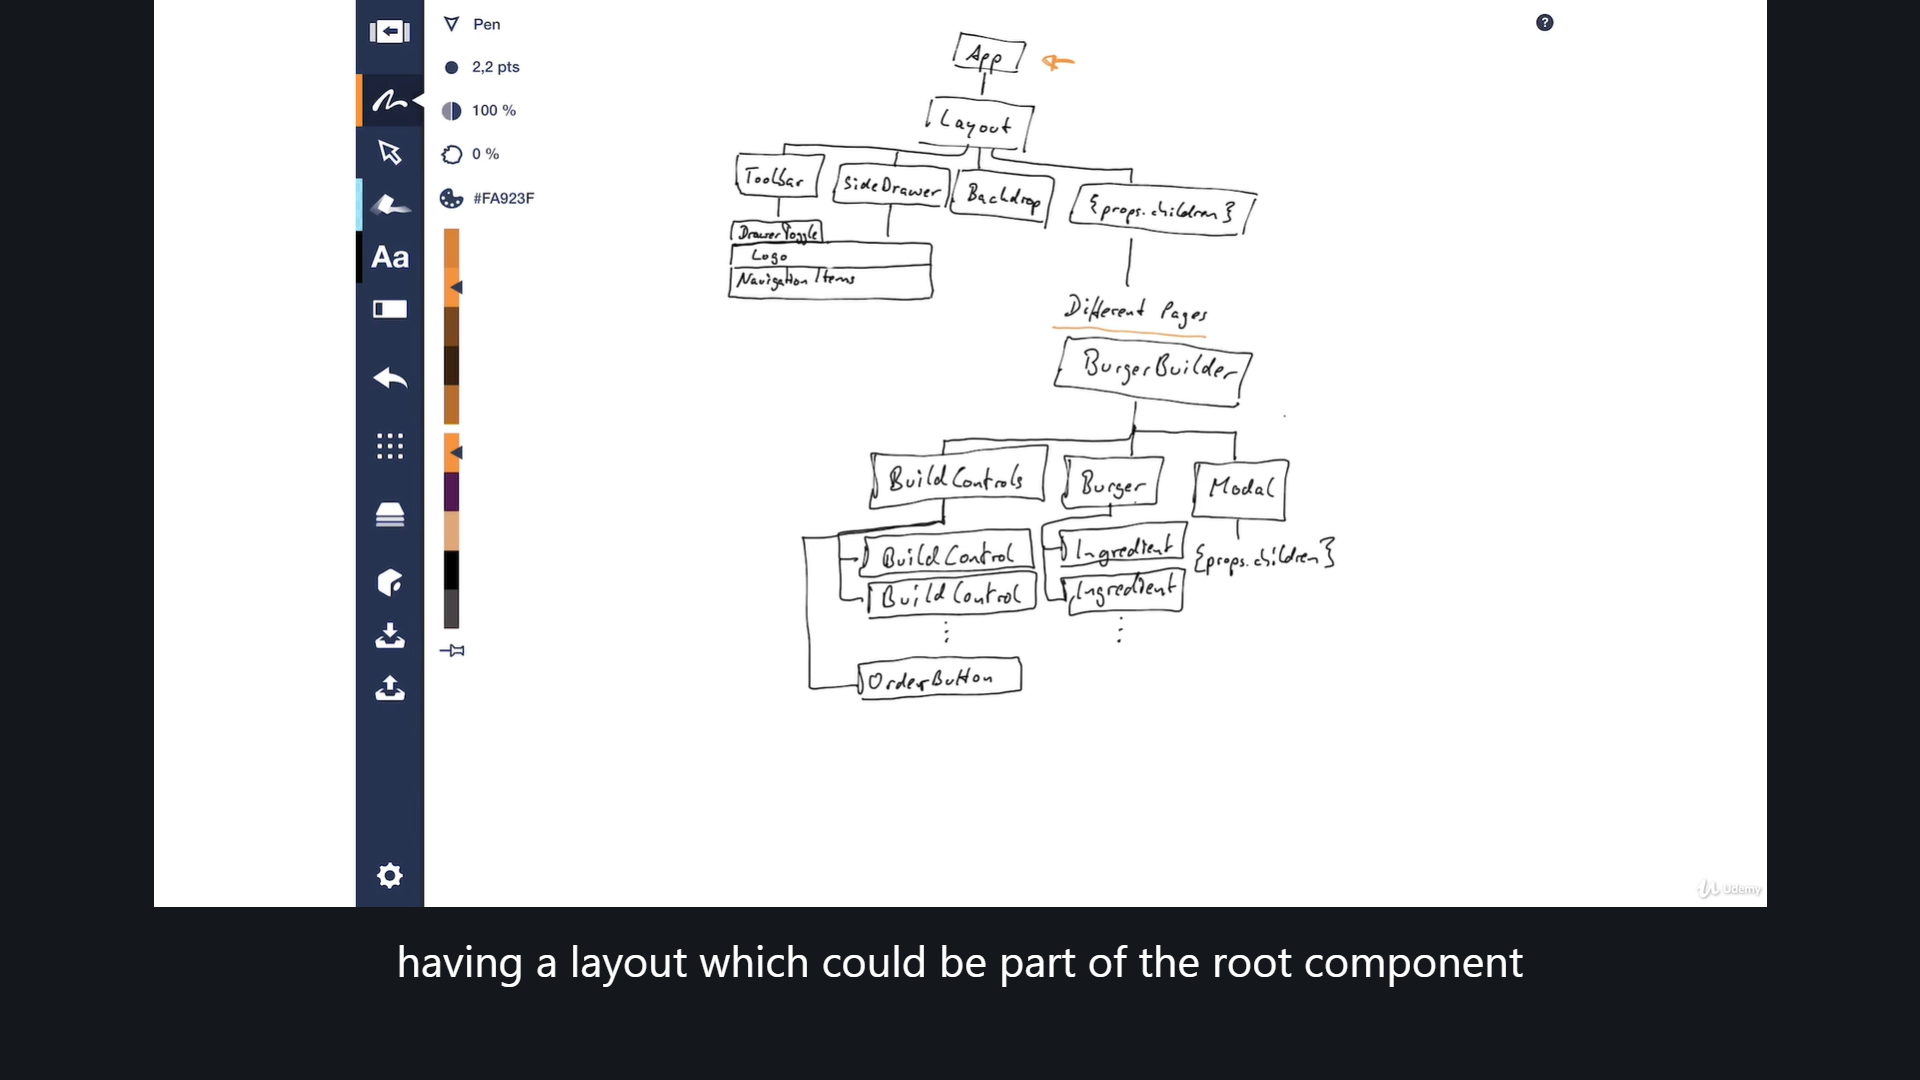 Pen
2,2 pts
100 %
0 %
#FA923F
Aa
?
App
Layout
Toolbar
SideDrawer
Backdrop
{props.children}
DrawerToggle
Logo
Navigation Items
Different Pages
BurgerBuilder
BuildControls
Burger
Modal
BuildControl
Ingredient
{props.children}
BuildControl
Ingredient
OrderButton
Udemy
having a layout which could be part of the root component